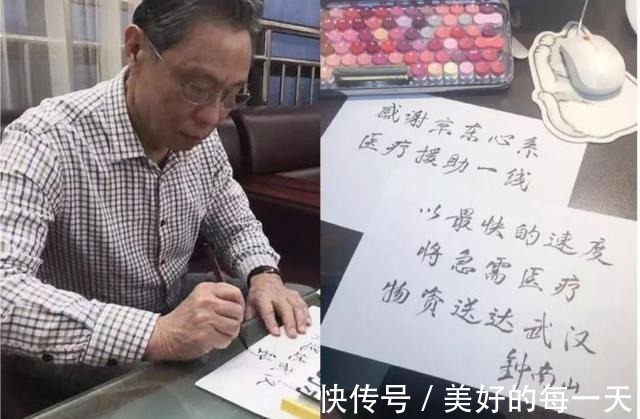 感谢京东心系
医疗援助一线
以最快的速度
将急需医疗
物资送达武汉
钟南山
快传号 / 美好的每一天